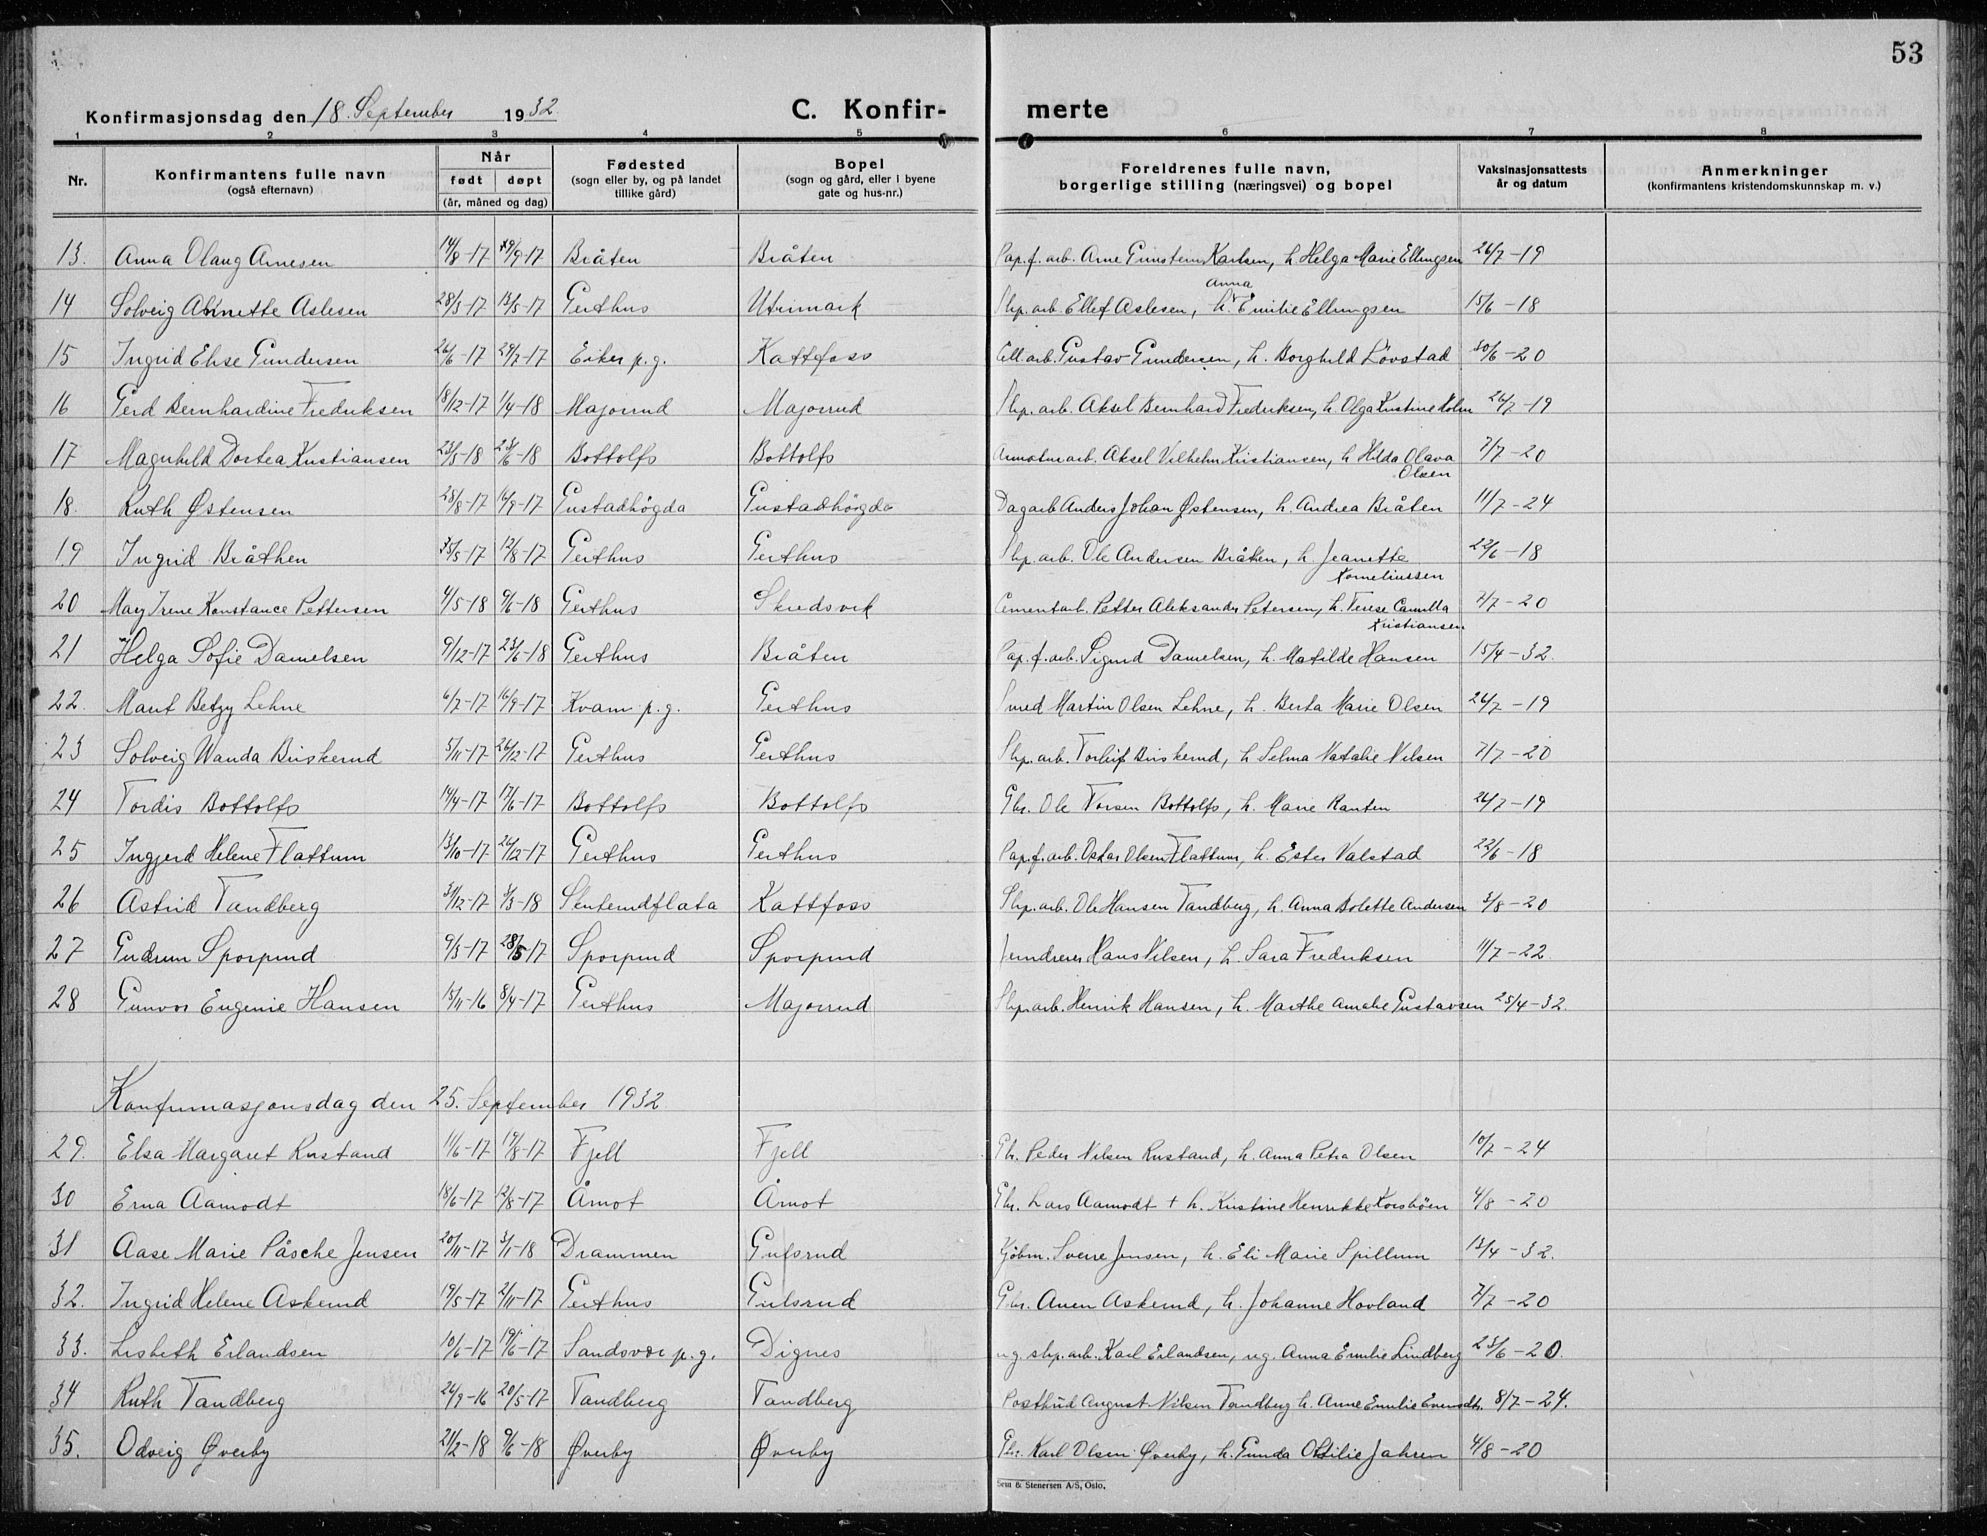 53
Konfirmasjonsdag den 18. September 1932
C. Konfir- merte
1 2 3 4 5 6 7 8
Nr. Konfirmantens fulle navn (også efternavn) Når født døpt (år, måned og dag) Fødested (sogn eller by, og på landet tillike gård) Bopel (sogn og gård, eller i byene gate og hus-nr.) Foreldrenes fulle navn, borgerlige stilling (næringsvei) og bopel Vaksinasjonsattests år og datum Anmerkninger (konfirmantens kristendomskunnskap m. v.)
13. Anna Olaug Arnesen 14/8-17 /9-17 Bråten Bråten Pap.f. arb. Arne Gunstein Karlsen, h. Helga Marie Ellingsen 26/7-19
14 Solveig Annette Aslesen 28/3-17 13/5-17 Gerthus Utrimark Slip. arb. Ellef Aslesen, h. Anna Emilie Ellingsen 15/6-18
15 Ingrid Elise Gundersen 26/6-17 29/7-17 Eiker p.g. Kattfoss Cell arb. Gustav Gundersen, h. Borghild Lövstad 30/6-20
16 Gerd Bernhardine Fredriksen 18/12-17 1/4-18 Majorrud Majorrud Slip. arb. Aksel Bernhard Fredriksen, h. Olga Kristine Holm 26/7-19
17 Magnhild Dortea Kristiansen 23/3-18 23/6-18 Bottolfs Bottolfs arb. Aksel Vilhelm Kristiansen, h. Hilda Olava Olsen 7/7-20
18. Ruth Østensen 28/8-17 16/9-17 Gustadhögda Gustadhögda Dagarb Anders Johan Østensen, h. Andrea Bråten 11/7-24
19. Ingrid Bråthen /5-17 12/8-17 Gerthus Gerthus Slip. arb. Ole Andersen Bråthen, h. Jeanette Korneliussen 22/6-18
20 May Irene Konstance Pettersen 4/5-18 9/6-18 Gerthus Skredsvik Cementarb. Petter Aleksander Petersen, h. Terese Camilla Kristiansen 7/7-20
21 Helga Sofie Danielsen 9/12-17 23/6-18 Gerthus Bråten Pap.f. arb. Sigurd Danielsen, h. Matilde Hansen 15/4-32.
22. Marit Betzy Lehne 6/7-17 16/9-17 Kvam p.g. Gerthus Smed Martin Olsen Lehne, h. Berta Marie Olsen 26/7-19
23 Solveig Wanda Buskerud 5/11-17 26/12-17 Gerthus Gerthus Slip. arb. Torleif Buskerud, h. Selma Natalie Nilsen 7/7-20
24 Tordis Bottolfs 14/4-17 17/6-17 Bottolfs Bottolfs Gbr. Ole Torsen Bottolfs, h. Marie Ranten 26/7-19
25 Ingjerd Helene Flattum 13/10-17 26/12-17 Gerthus Gerthus Pap.f. arb. Oskar Olsen Flattum, h. Ester Valstad 22/6-18
26 Astrid Tandberg 31/12-17 3/3-18 Skuterudflata Kattfoss Slip. arb. Ole Hansen Tandberg, h. Anna Bolette Andersen 3/8-20
27 Gudrun Sporpind 9/3-17 28/5-17 Sporpind Sporpind Hans Nilsen, h. Sara Fredriksen 11/7-22.
28 Gunvor Eugenie Hansen 15/11-16 8/4-17 Gerthus Majorrud Slip. arb. Henrik Hansen, h. Marthe Amalie Gustavsen 25/4-32.
Konfirmasjonsdag den 25. September 1932.
29. Elsa Margaret Rustand 11/6-17 19/8-17 Fjell Fjell Gbr. Peder Nilsen Rustand, h. Anna Petra Olsen 10/7-24
30 Erna Aamodt 18/6-17 12/8-17 Åmot Åmot Gbr. Lars Aamodt + h. Kristine Henrikke Korsböen 4/8-20
31 Aase Marie Påsche Jensen 20/11-17 3/1-18 Drammen Gulsrud Kjöbm. Sverre Jensen, h. Eli Marie Spillum 13/4-32.
32. Ingrid Helene Askerud 19/5-17 2/11-17 Gerthus Gulsrud Gbr. Anen Askerud, h. Johanne Hovland 7/7-20
33. Lisbeth Erlandsen 10/6-17 19/6-17 Sandsvær p.g. Dignes ug. slip. arb. Karl Erlandsen, ug. Anna Emilie Lindberg 23/6-20.
34 Ruth Tandberg 26/9-16 20/5-17 Tandberg Tandberg Postbud August Nilsen Tandberg h. Anne Emilie 8/7-24.
35. Odveig Øverby 21/2-18 9/6-18 Øverby Øverby Gbr. Karl Olsen Øverby, h. Gunda Otilie Jahren 4/8-20
Sem & Stenersen A/S, Oslo.